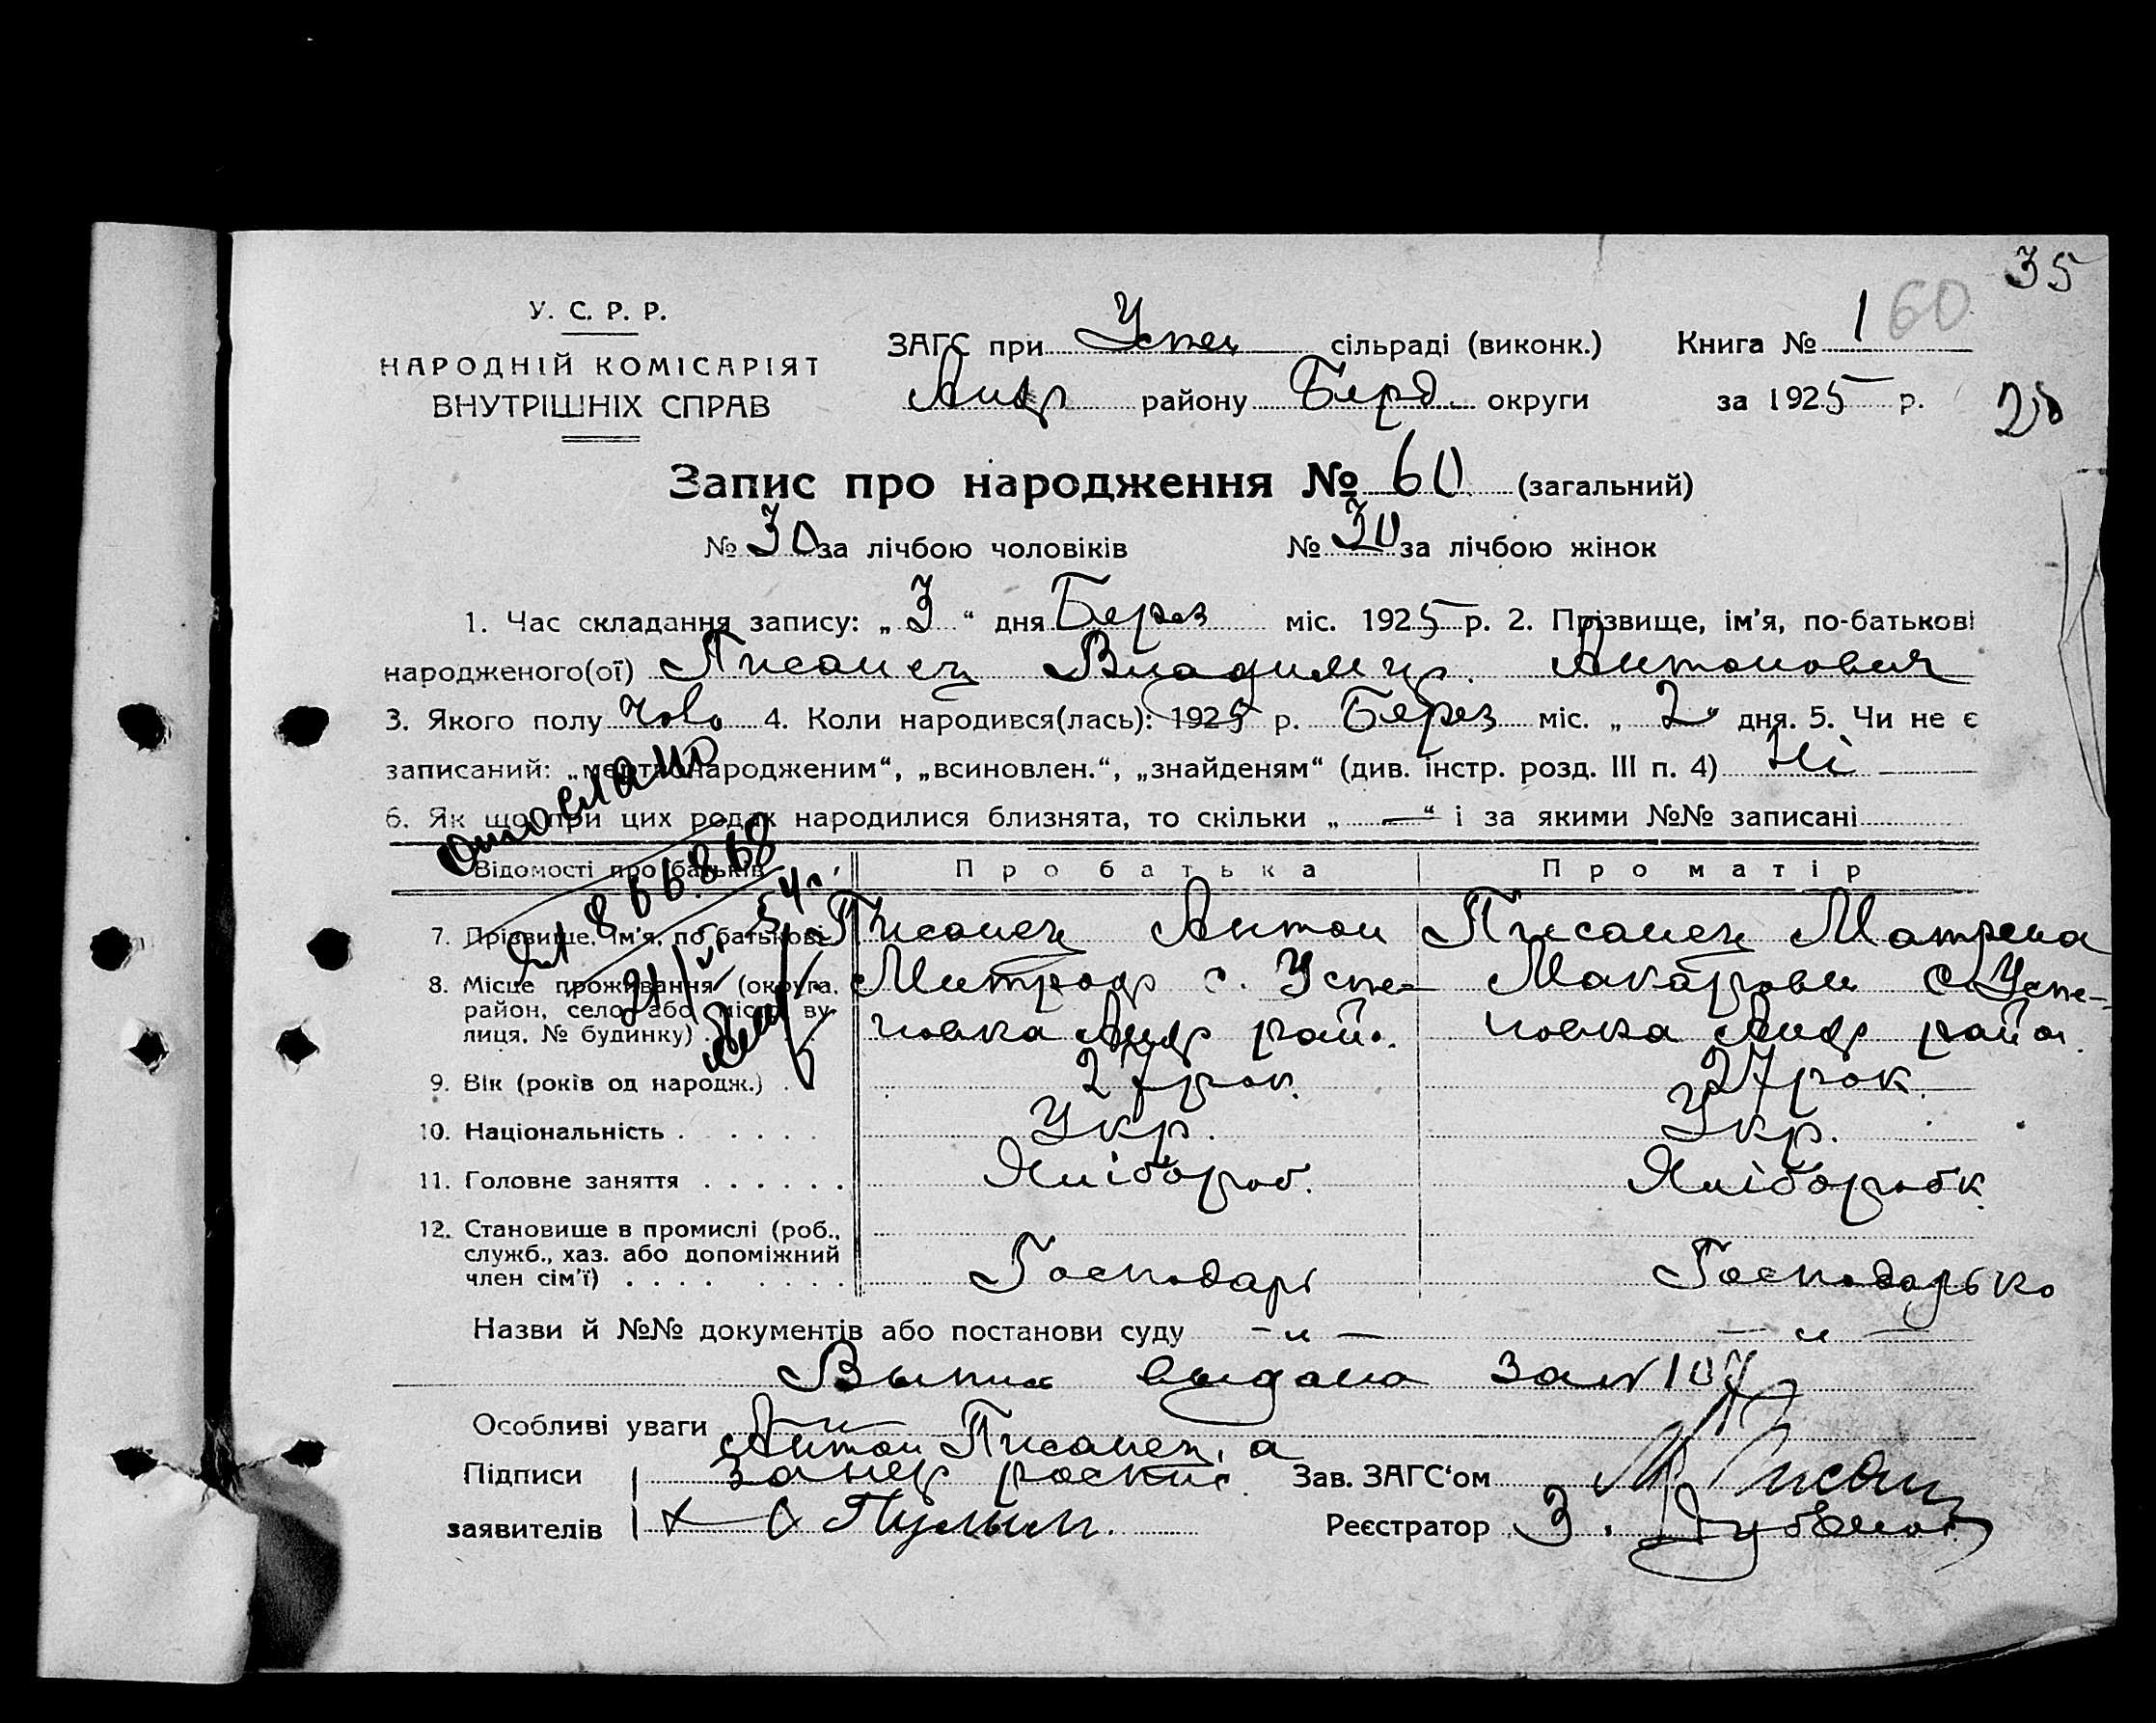 35
У. С. Р. Р.
НАРОДНІЙ КОМІСАРІЯТ
ВНУТРІШНІХ СПРАВ
ЗАГС при Успен сільраді (виконк.) Книга № 1 60
Андр району Берд округи за 1925 р.
20
Запис про народження № 60 (загальний)
№ 30 за лічбою чоловіків № 30 за лічбою жінок
1. Час складання запису: „ 3 “ дня Берез міс. 1925 р. 2. Прізвище, ім’я, по-батькові
народженого(ої) Писанец Владимир. Антонович
3. Якого полу Чоло 4. Коли народився(лась): 1925 р. Берез міс. „ 2 “ дня. 5. Чи не є
записаний: „мертвонародженим“, „всиновлен.“, „знайденям“ (див. інстр. розд. III п. 4) Ні
6. Як що при цих родах народилися близнята, то скільки „ — “ і за якими №№ записані
Отослано
Відомості про батьків Про батька Про матір
7. Прізвище, ім’я, по батькові Писанец Антон Писанец Матрена
8. Місце проживання (округа, Митроф с. Успе- Макаровн с. Успе-
район, село або місто ву-
лиця, № будинку) новка Андр райо. новка Андр райо.
9. Вік (років од народж.) 27 рок. 27 рок.
10. Національність Укр. Укр.
11. Головне заняття Хлібороб. Хліборобк.
12. Становище в промислі (роб.,
служб., хаз. або допоміжний
член сім’ї) Господарь Господарько
Назви й №№ документів або постанови суду — „ — — „ —
Выпис выдана за № 107
Особливі уваги — „ —
Антон Писанец, а
Підписи за нег роспис. Зав. ЗАГС‘ом Писан
заявителів Реєстратор З.